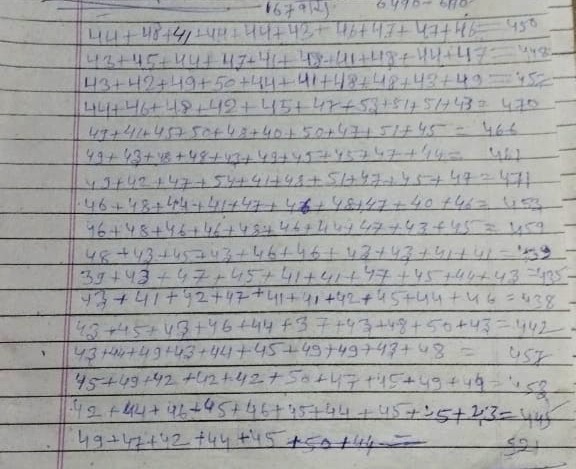 44+48+41+44+44+43+46+47+47+46= 450
43+45+44+47+41+48+41+48+44+47= 448
43+42+49+50+44+41+48+48+43+49=457
44+46+48+42+45+47+53+51+51+43= 470
49+41+45+50+48+40+50+47+51+45 = 466
49+43+43+48+43+49+45+45+47+44= 461
49+42+47+54+41+48+51+47+45+47=471
46+48+44+41+47+46+48+47+40+46=453
46+48+46+46+48+46+44+47+43+45=459
48+43+45+43+46+46+43+43+41+41=439
39+43+47+45+41+41+47+45+44+43=435
43+41+42+47+41+41+42+45+44+46=438
43+45+43+46+44+37+43+48+50+43=442
43+44+49+43+44+45+49+49+43+48= 457
45+49+42+42+42+50+47+45+49+49=453
42+44+46+45+46+45+44+45+45+43=445
49+47+42+44+45+50+44= 321